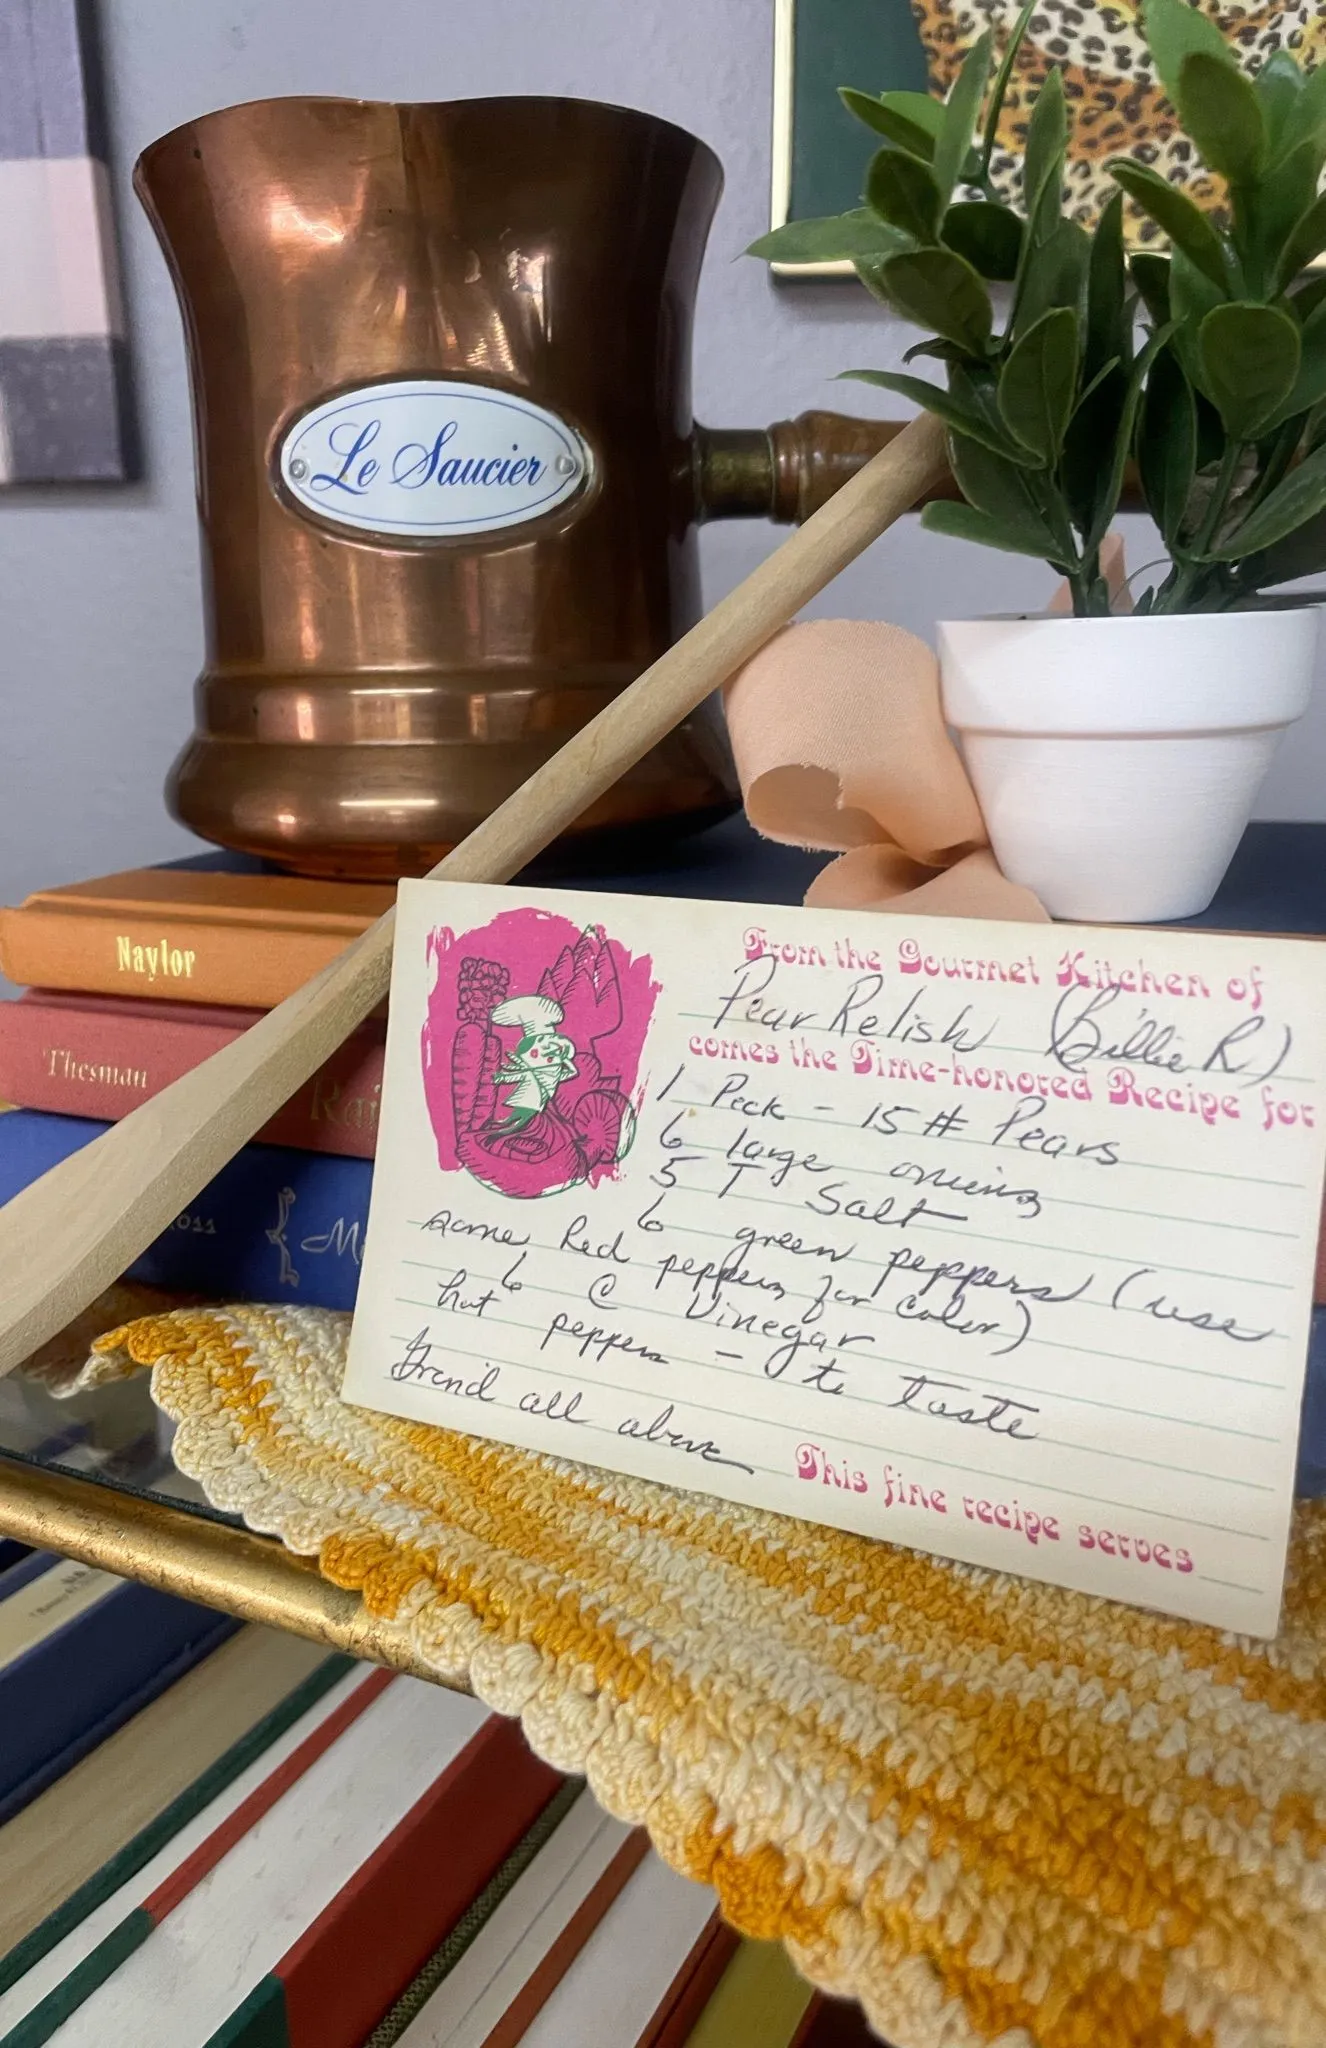 Le Saucier
Naylor
Thesman
Rai
From the Gourmet Kitchen of
Pear Relish (Billie R)
comes the Time-honored Recipe for
1 Peck - 15 # Pears
6 large onions
5 T Salt
6 green peppers (use
some Red peppers for color)
6 C Vinegar
hot peppers - to taste
Grind all above
This fine recipe serves